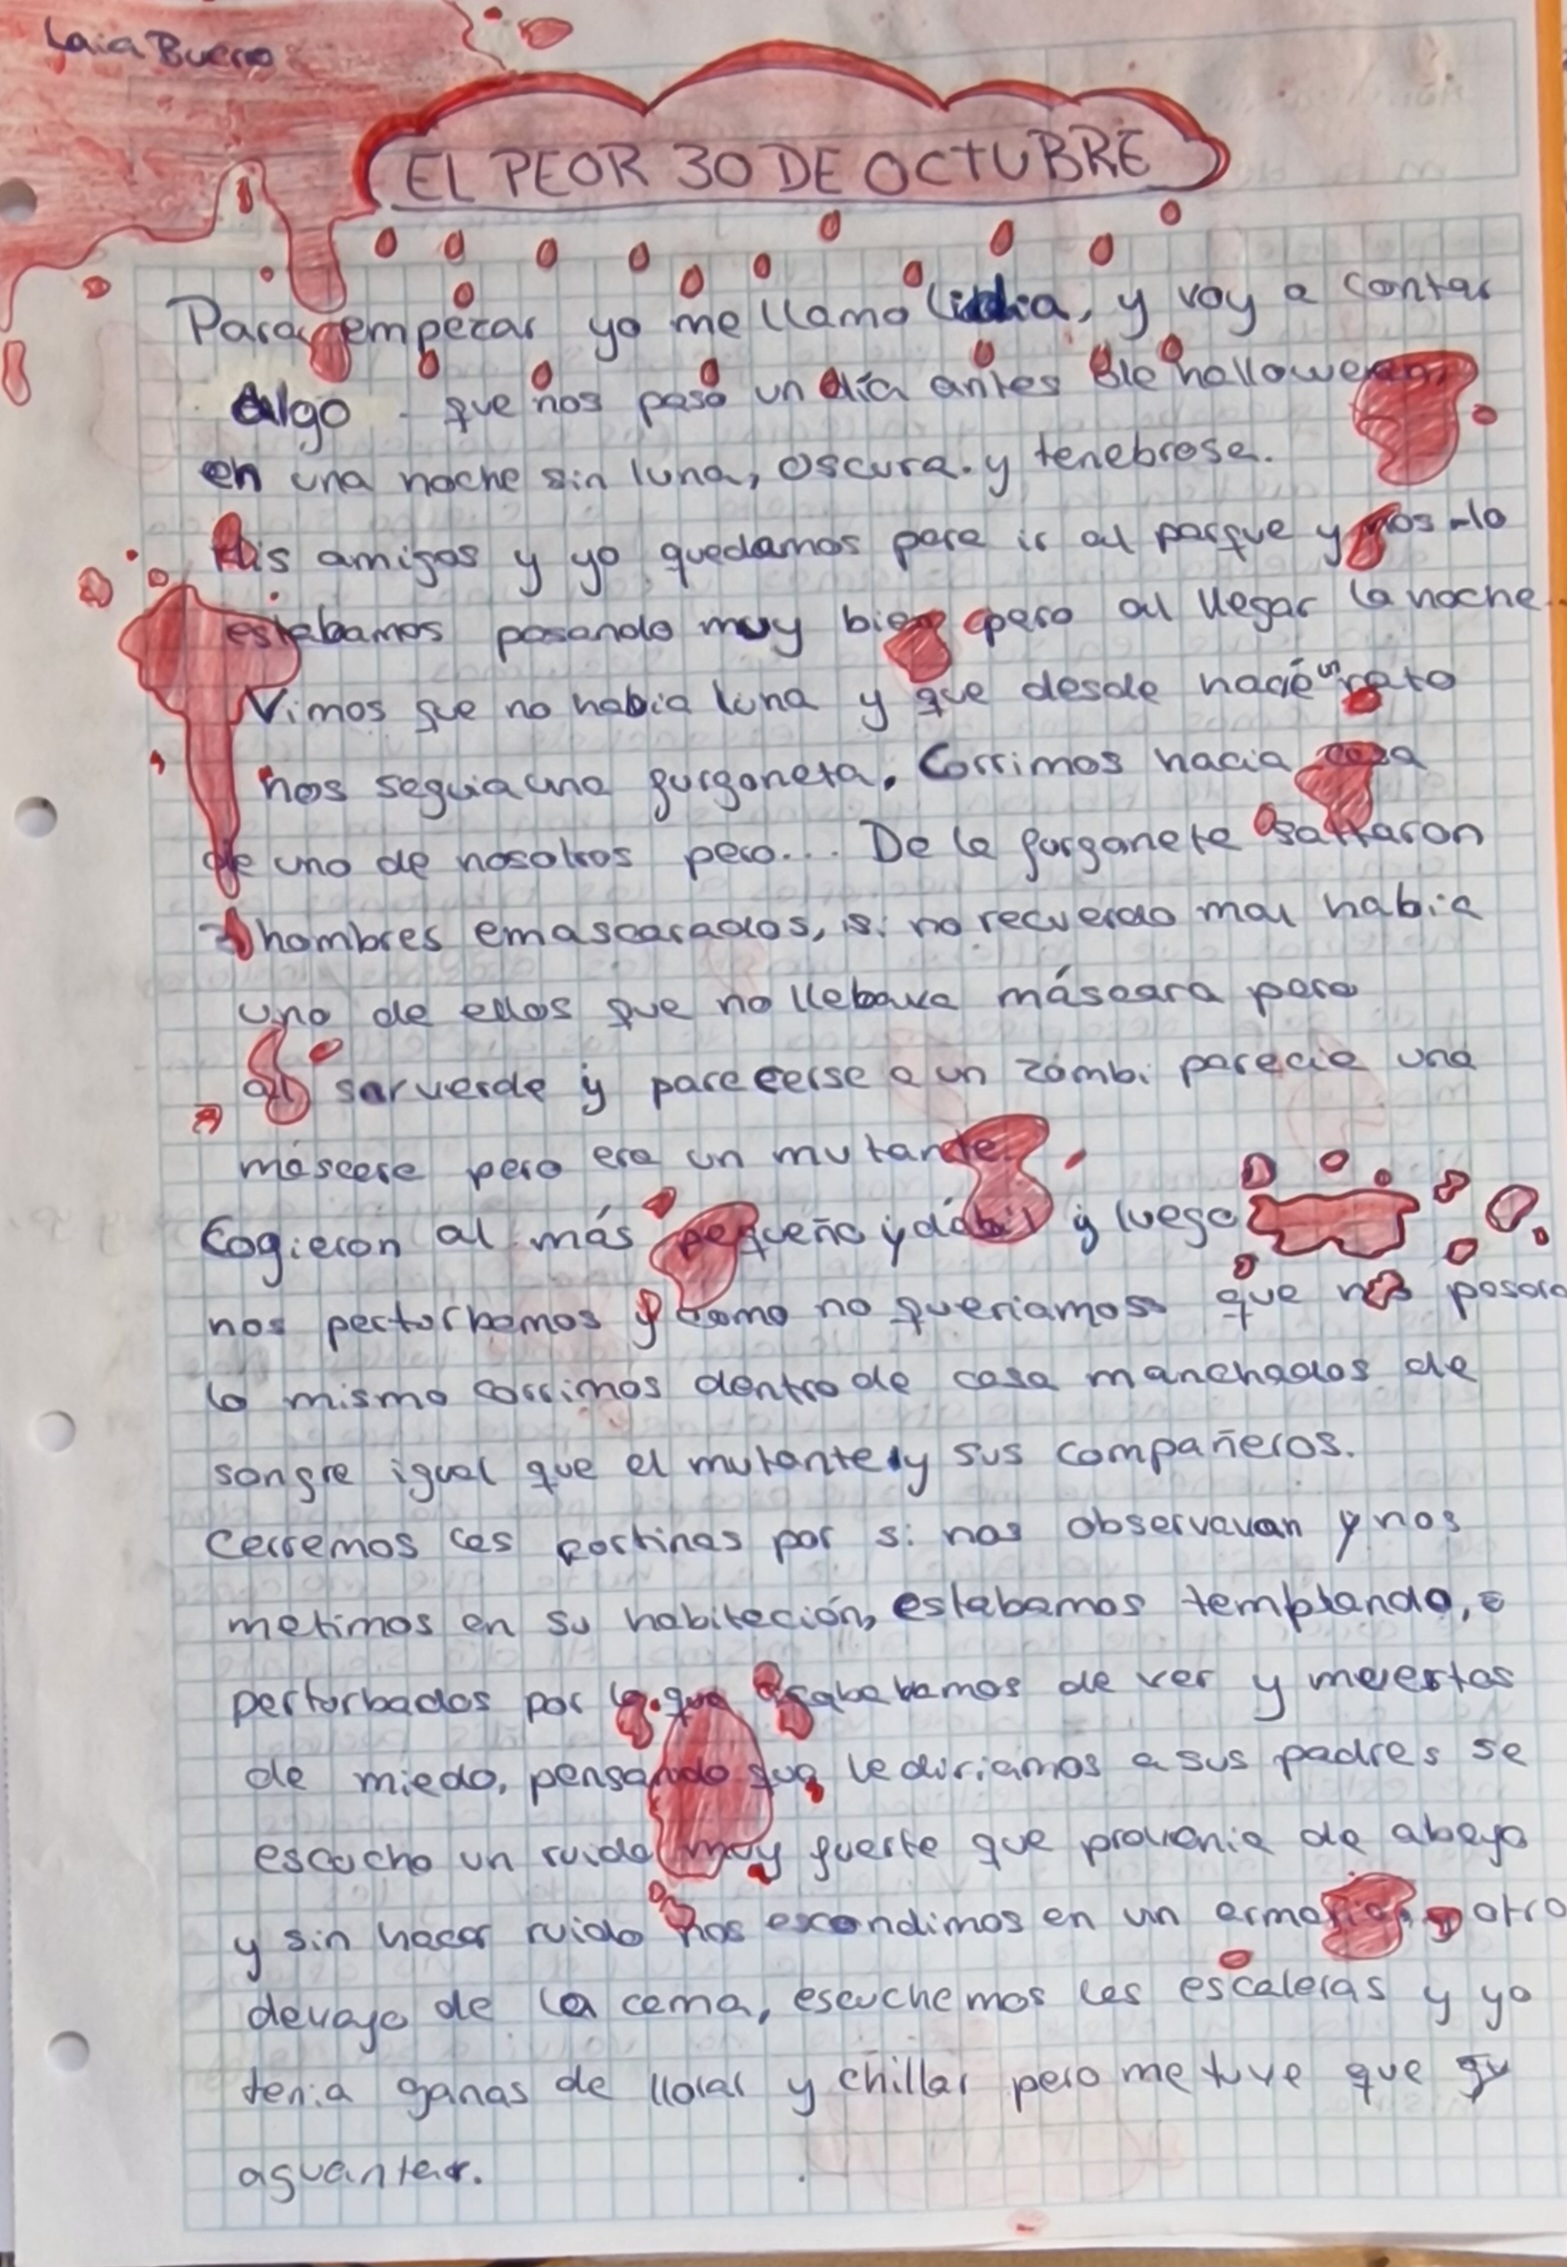 Laia Bueno
EL PEOR 30 DE OCTUBRE
Para empezar yo me llamo Lidia, y voy a contar
Algo que nos pasó un día antes de halloween,
en una noche sin luna, oscura y tenebrosa.
Mis amigos y yo quedamos para ir al parque y nos lo
estabamos pasando muy bien pero al llegar la noche
Vimos que no habia luna y que desde hacíe un rato
nos seguia una furgoneta. Corrimos hacia casa
de uno de nosotros pero... De la furganeta saltaron
hombres emascarados, si no recuerdo mal habia
uno de ellos que no llebava máscara pero
al sar verde y parecerse a un zombi parecia una
máscara pero era un mutante.
Cogieron al más pequeño y débil y luego
nos perturbamos y como no queriamos que nos pasara
lo mismo corrimos dentro de casa manchados de
sangre igual que el mutante y sus compañeros.
Cerremos las cortinas por si nos observavan y nos
metimos en su habitación, estabamos templando,
perturbados por lo que acababamos de ver y muertos
de miedo, pensando que le diriamos a sus padres se
escucho un ruido muy fuerte que provenia de abajo
y sin hacer ruido nos escondimos en un armario, y otro
devajo de la cama, escuchemos las escaleras y yo
tenia ganas de llorar y chillar pero me tuve que
aguantar.